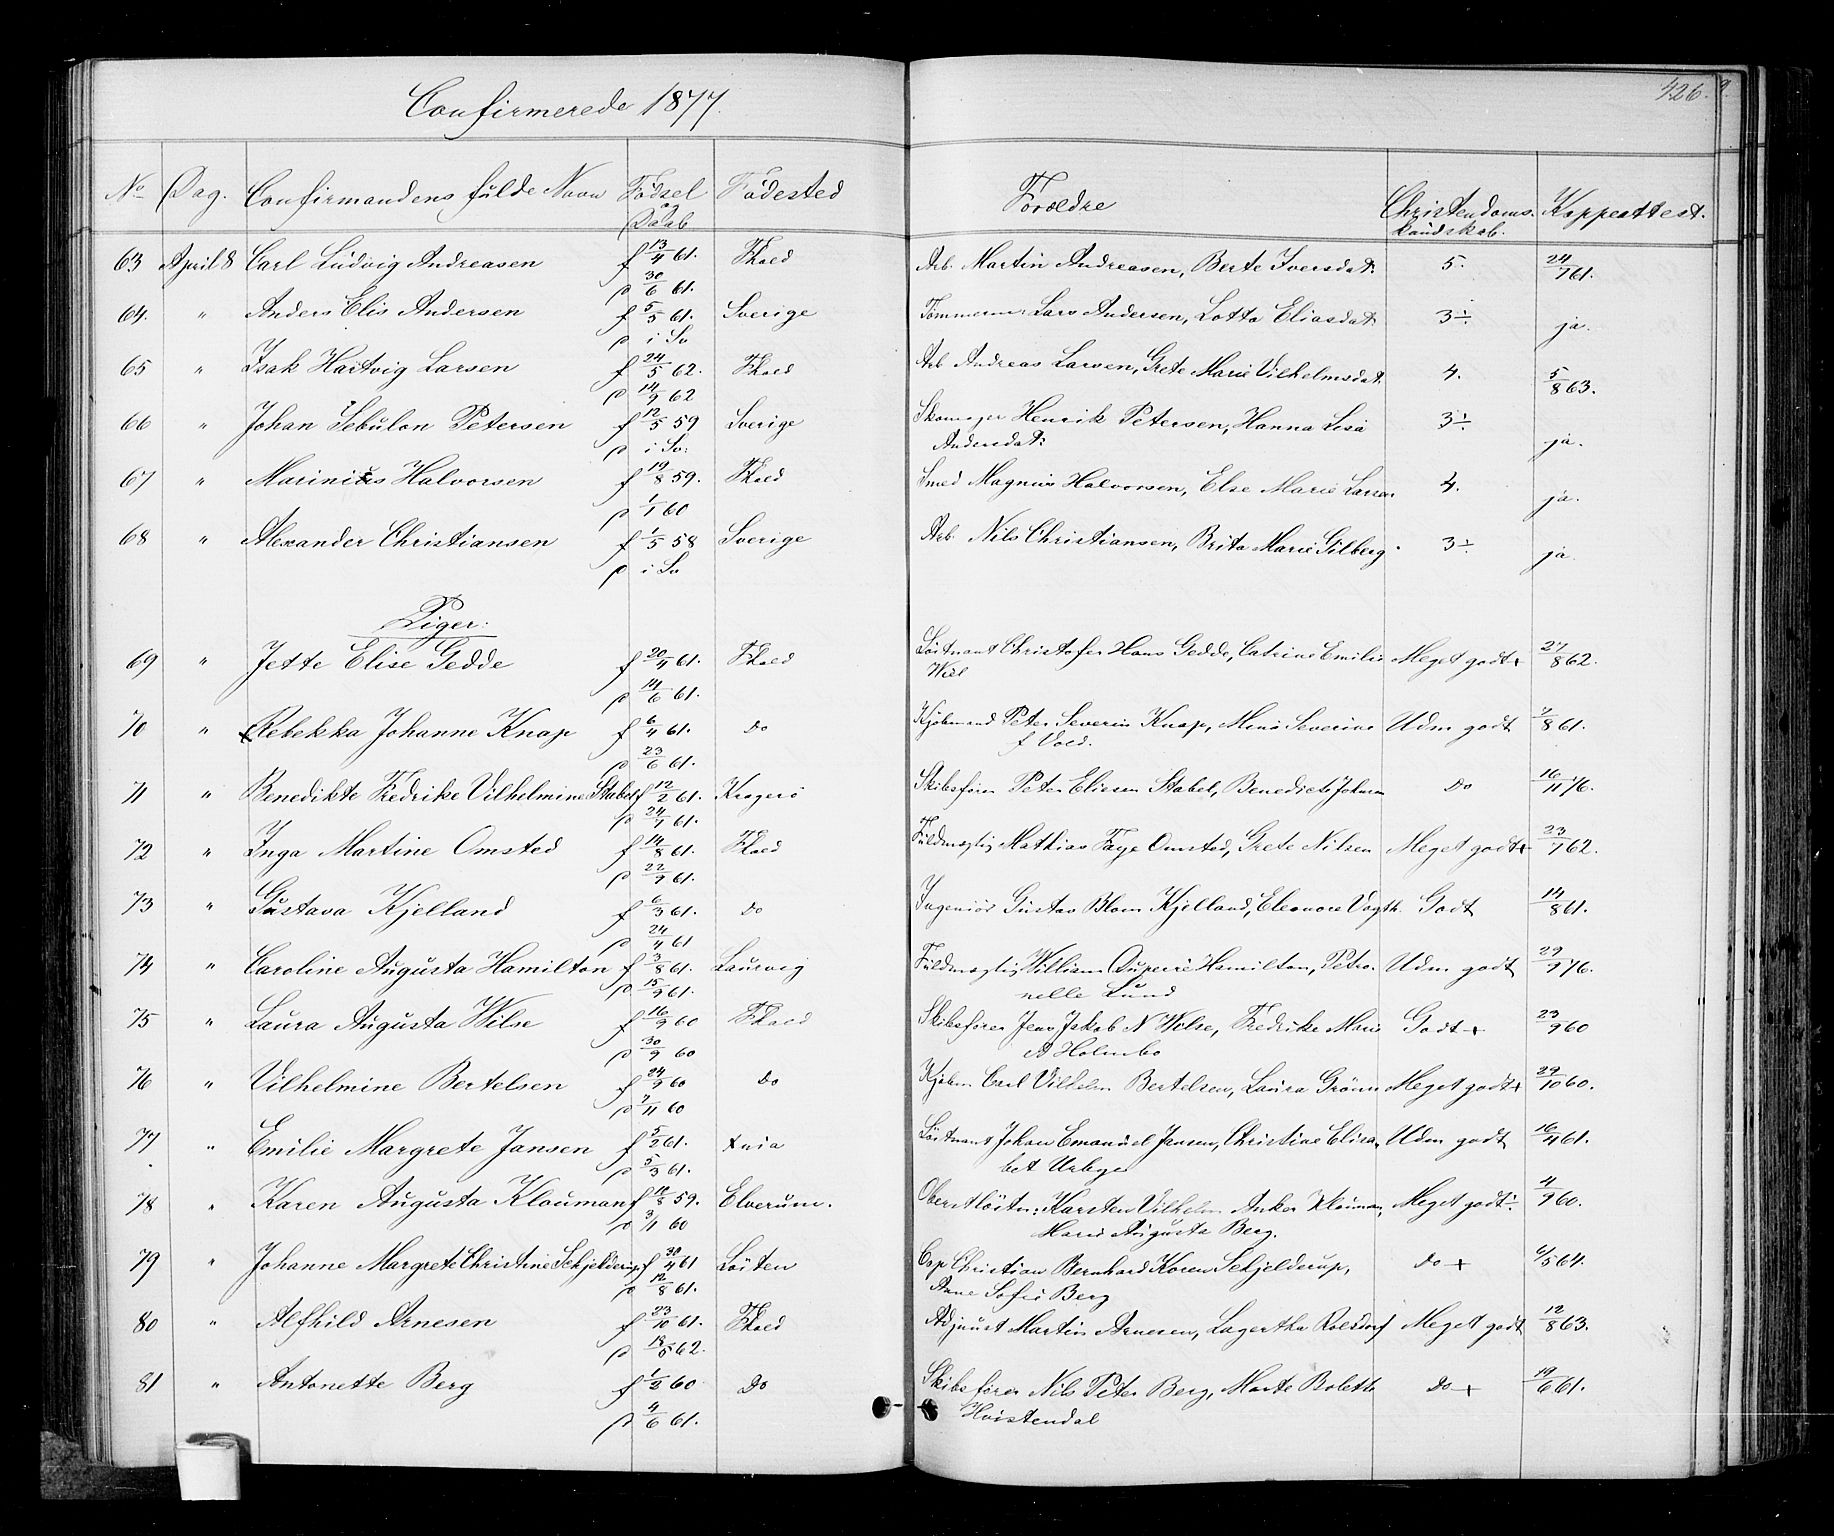 Confirmerede 1877.
426.
No Dag. Confirmandens fulde Navn Födsel og Daab Födested Forældre Christendoms-kundskab. Koppeattest.
63 April 8 Carl Ludvig Andreasen f 13/4 61. Fhald Arb. Martin Andreasen, Berte Iversdat: 5. 24/7 61.
d 30/6 61.
64. " Anders Elis Andersen f 5/5 61. Sverige Tömmerm: Lars Andersen, Lotta Eliasdat. 3÷. ja.
d i Sv
65 " Isak Hartvig Larsen f 24/5 62. Fhald Arb Andreas Larsen, Grete Marie Vilhelmsdat. 4. 5/8 63.
d 14/9 62
66 " Johan Sebulon Petersen f 12/5 59 Sverige Skomager Henrik Petersen, Hanna Lisa 3÷. ja.
d i Sv: Andersdat:
67 " Marinius Halvorsen f 19/8 59. Fhald Smed Magnus Halvorsen, Else Marie Larsen 4. ja.
d 1/1 60
68 " Alexander Christiansen f 1/5 58 Sverige Arb. Nils Christiansen, Brita Marie Gilberg 3÷. ja.
d i Sv
Piger:
69 " Jette Elise Gedde f 20/4 61. Fhald Löitnant Christofer Hans Gedde, Catrine Emilie Meget godt+ 27/8 62.
d 14/6 61. Wiel
70 " Rebekka Johanne Knap f 6/4 61. Do Kjöbmand Peter Severin Knap, Mina Severine Udm godt 7/8 61.
d 23/6 61. f Vold.
71 " Benedikte Fredrike Vilhelmine Stabel f 12/2 61. Kragerö Skibsförer Peter Eliesen Stabel, Benedicte Johnsen Do 16/11 76.
d 24/7 61.
72 " Inga Martine Omsted f 14/8 61. Fhald Fuldmægtig Mathias Faye Omsted, Grete Nilsen Meget godt+ 23/7 62.
d 22/9 61.
73 " Gustava Kjelland f 6/3 61. Do Ingeniör Gustav Blom Kjelland, Eleonore Vogth. Godt 14/8 61.
d 24/4 61
74 " Caroline Augusta Hamilton f 3/8 61. Laurvig Fuldmægtig William Duperré Hamilton, Petro- Udm godt 29/9 76.
d 15/9 61. nelle Lund
75 " Laura Augusta Wilse f 16/9 60 Fhald Skibsförer Jens Jakob N Wilse, Fredrike Marie Godt+ 23/9 60
d 30/9 60 Holmbo
76 " Vilhelmine Bertelsen f 24/9 60 Do Kjöbm Carl Vilhelm Bertelsen, Laura Grönn Meget godt+ 29/10 60.
d 7/11 60
77 " Emilie Margrete Jansen f 5/2 61. Xnia Löitnant Johan Emanuel Jansen, Christine Elisa- Udm godt 16/4 61.
d 5/3 61. bet Urbye
78 " Karen Augusta Klouman f 12/8 59. Elverum. Oberstlöitn: Karsten Vilhelm Anker Klouman, Meget godt÷ 4/9 60.
d 3/1 60 Maria Augusta Berg.
79 " Johanne Margrete Christine Schjelderup f 30/4 61 Löiten Cap Christian Bernhard Koren Schjelderup, Do + 6/5 64.
d 12/8 61. Anne Sofie Berg
80 " Alfhild Arnesen f 23/10 61. Fhald Adjunct Martin Arnesen, Lagertha Rolsdorf Meget godt 12/8 63.
d 18/5 62.
81 " Antonette Berg f 1/2 60 Do Skibsförer Nils Peter Berg, Marte Bolette Do + 19/6 61.
d 4/6 61. Hvistendal